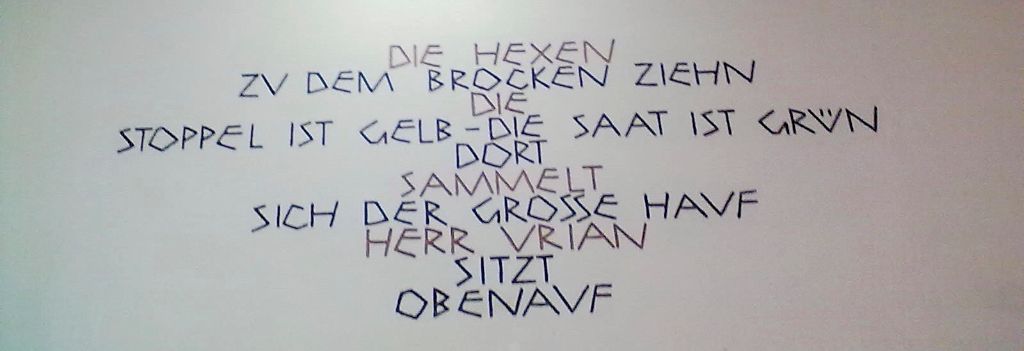 DIE HEXEN
ZV DEM BROCKEN ZIEHN
DIE
STOPPEL IST GELB - DIE SAAT IST GRV̈N
DORT
SAMMELT
SICH DER GROSSE HAVF
HERR VRIAN
SITZT
OBENAVF